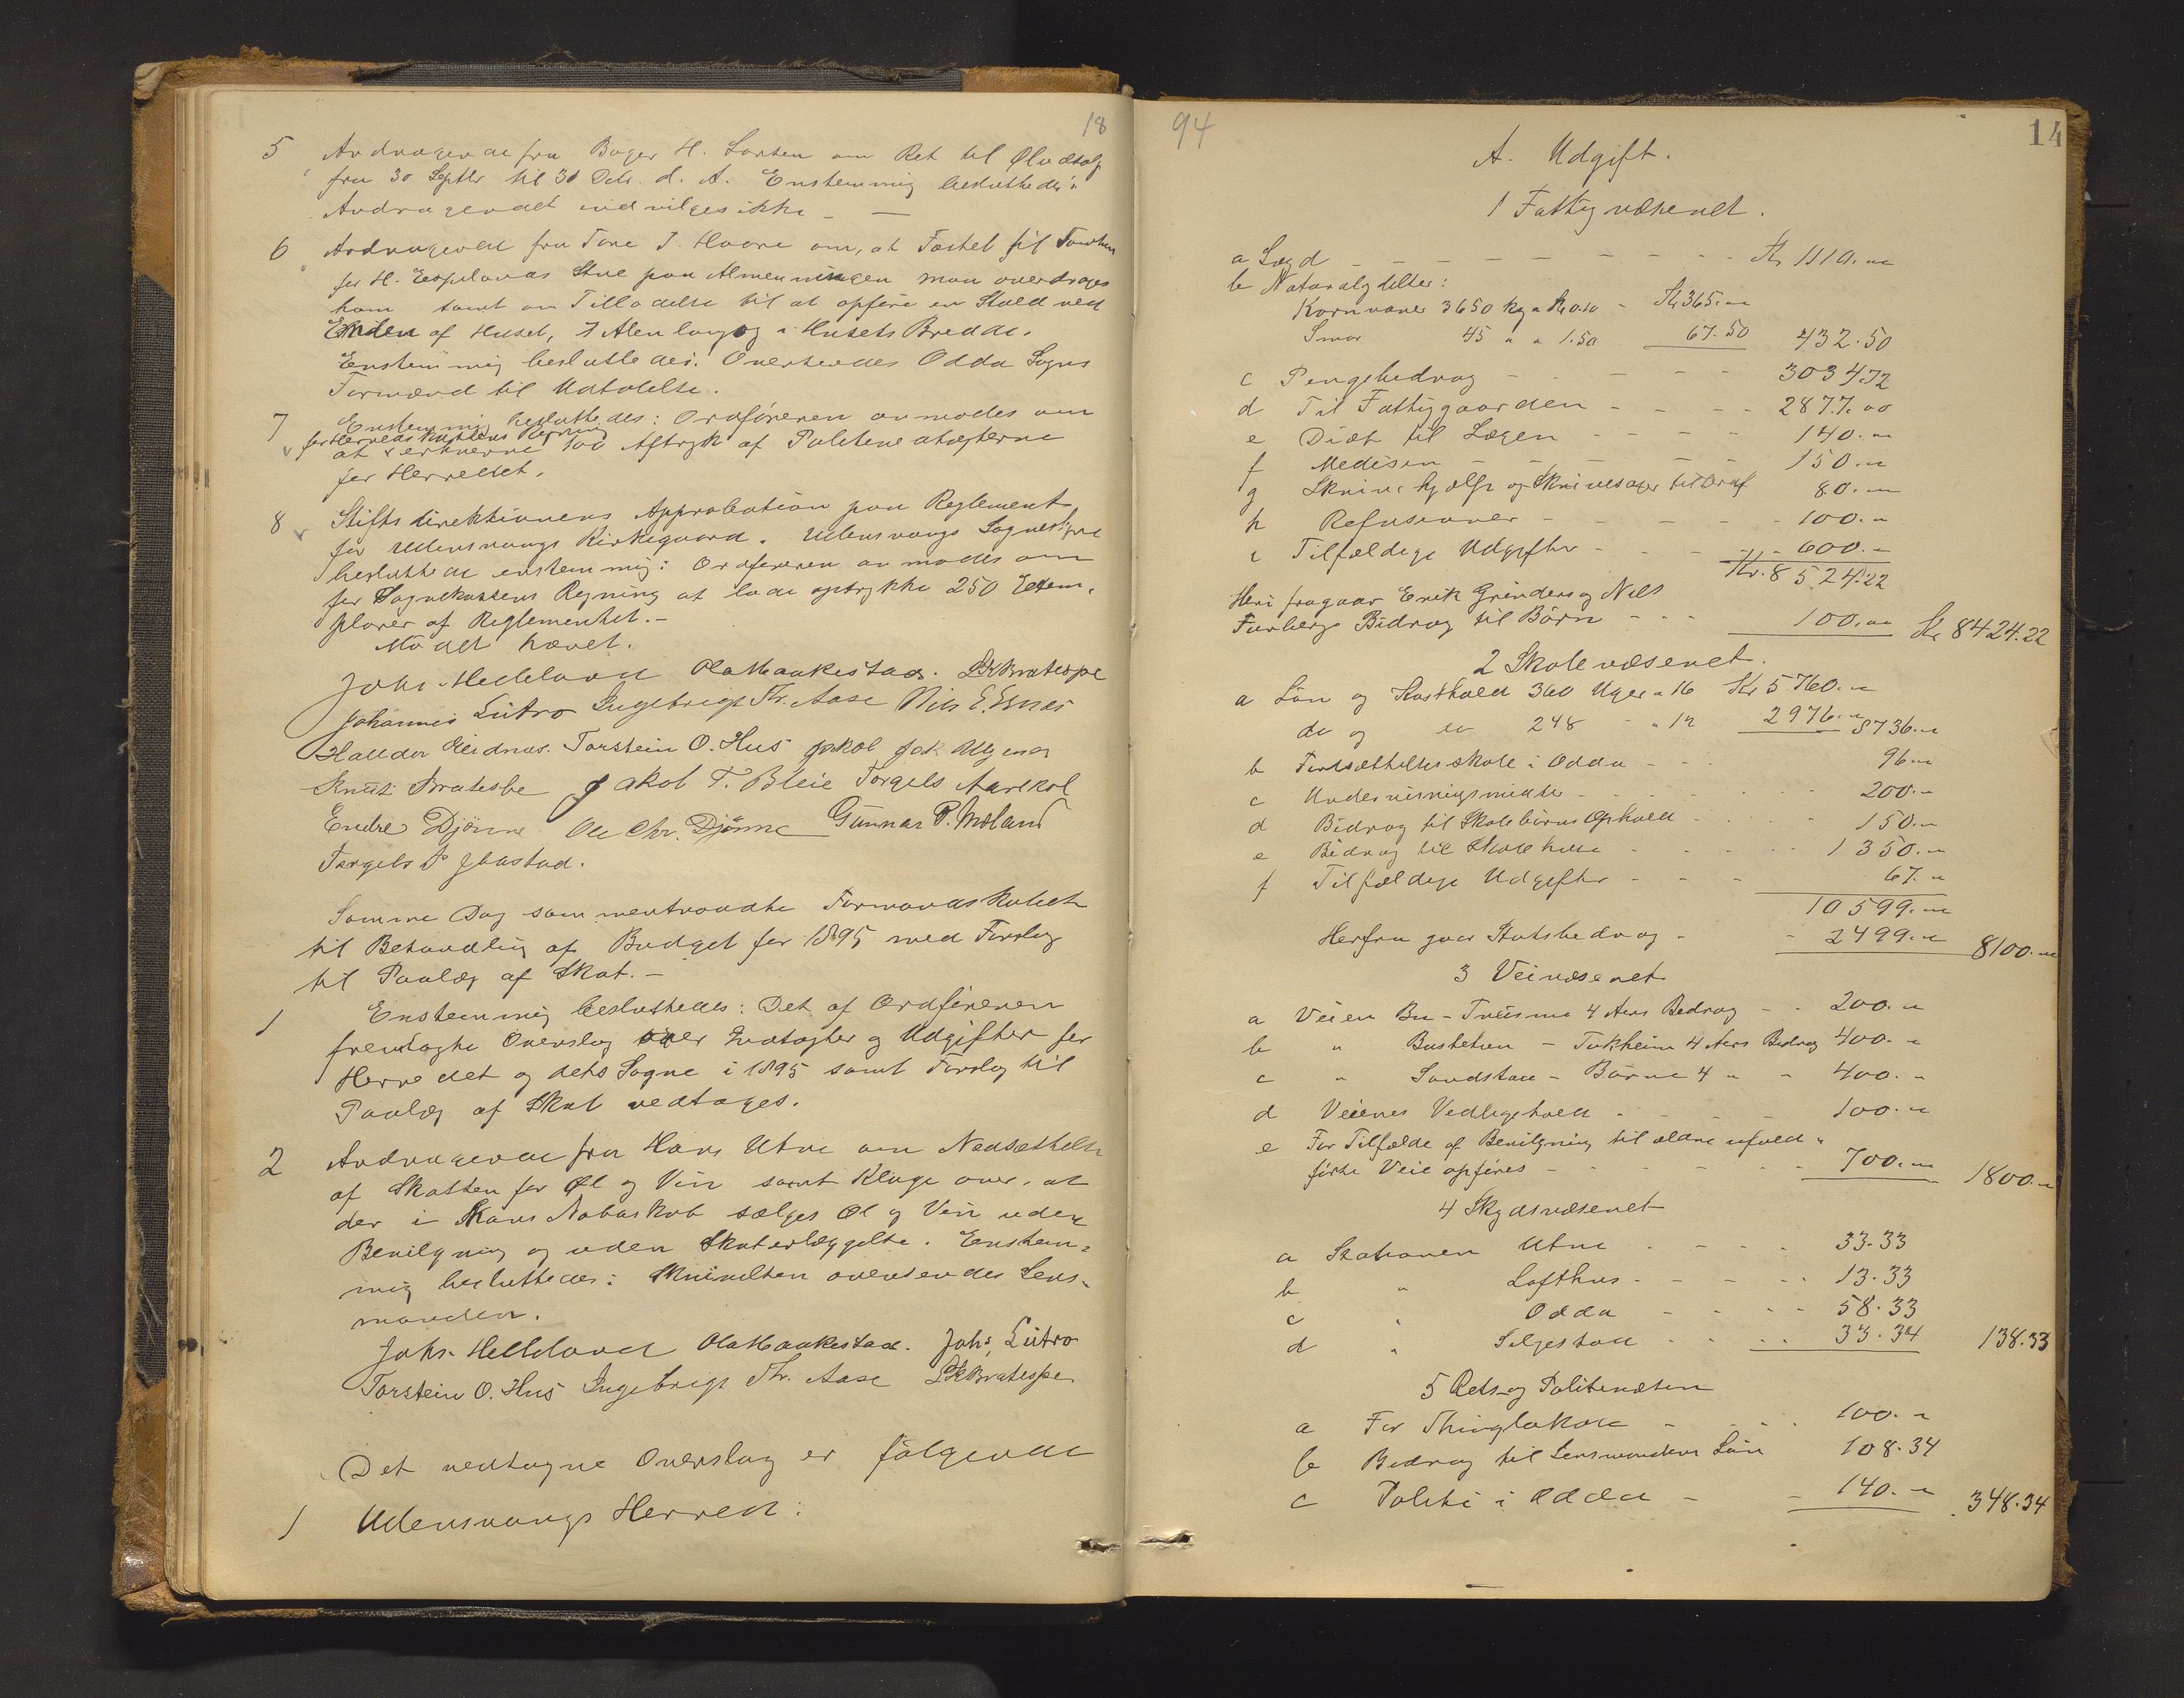 18
5 Andragende fra Bager H. Larsen om Ret til Øludsalg
fra 30 Septbr til 31 Decbr. d. A. Enstemmig besluttedes:
Andragendet indvilges ikke. —
6 Andragende fra Tore T. Hovre om, at Fæstet til Tomten
for H. Espelands Stue paa Almenningen maa overdrages
ham samt om Tilladelse til at opføre en Stald ved
Enden af Huset, 7 Alen lang og i Husets Bredde.
Enstemmig besluttedes: Oversendes Odda Sogns
Formænd til Udtalelse.
7 Enstemmig besluttedes: Ordføreren anmodes om
for Herredskassens Regning
at erhverve 100 Aftryk af Politivedtægterne
for Herredet.
8 Stiftsdirektionens Approbation paa Reglement
for Ullensvangs Kirkegaard. Ullensvangs Sognestyre
besluttede enstemmig: Ordføreren anmodes om
for Sognekassens Regning at lade optrykke 250 Exem-
plarer af Reglementet. -
Mødet hævet.
Johs. Helleland Ola Maakestad. LK Bratespe
Johannes Lutro Ingebrigt Th. Aase Nils E. Esnes
Halldor Reidnes. Torstein O. Hus Jakob Jak Alsager
Knut Bratesbe Jakob T. Bleie Torgils Aarekol
Endre Djønne Ole Chr. Djønne Gunnar P. Moland
Torgels P Jaastad.
Samme Dag sammentraadte Formandskabet
til Behandling af Budget for 1895 med Forslag
til Paalæg af Skat. -
1 Enstemmig besluttedes: Det af Ordføreren
fremlagte Overslag over Indtægter og Udgifter for
Herredet og dets Sogne i 1895 samt Forslag til
Paalæg af Skat vedtages.
2 Andragende fra Hans Utne om Nedsættelse
af Skatten for Øl og Vin samt Klage over, at
der i Hans Naboskab sælges Øl og Vin uden
Bevilgning og uden Skaterlæggelse. Enstem-
mig besluttedes: Skrivelsen oversendes Lens-
manden.
Johs. Helleland Ola Maakestad. Johs. Lutro
Torstein O. Hus Ingebrigt Th. Aase LK Bratespe.
Det vedtagne Overslag er følgende
1 Ullensvangs Herred:
94
14
A. Udgift.
1 Fattigvæsenet.
a Lægd - - - - - Kr 1110.00
b Naturalydelser:
Kornvarer 3650 kg a Kr 0.10 - Kr 365.00
Smør 45 " a 1.50 67.50 432.50
c Pengebidrag - - - 3034.72
d Til Fattiggaarden - - - 2877.00
e Diæt til Lægen - - - 140.00
f Medisin - - - 150.00
g Skrivehjælp og Skrivesager til Ordf 80.00
h Refusioner - - - 100.00
i Tilfældige Udgifter - - - 600.00
Kr. 8524.22
Heri fragaar Erik Grønders og Nils
Furbergs Bidrag til Børn - - - 100.00 Kr 8424.22
2 Skolevæsenet.
a Løn og Kosthold 360 Uger a 16 Kr 5760.00
do og do 248 - a 12 2976.00 8736.00
b Fortsættelsesskole i Odda - - 96.00
c Undervisningsmidler - - - 200.00
d Bidrag til Skolebørns Ophold - - 150.00
e Bidrag til Skolehuse - - - 1350.00
f Tilfældige Udgifter - - - 67.00
10599.00
Herfra gaar Statsbidrag - - 2499.00 8100.00
3 Veivæsenet
a Veien Bu - Treisme 4 Aars Bidrag - - 200.00
b " Bustetun - Tokheim 4 Aars Bidrag 400.00
c " Sandstøe - Børve 4 " - 400.00
d Veienes Vedligehold - - - 100.00
e For Tilfælde af Bevilgning til ældre ufuld-
førte Veie opføres - - - 700.00 1800.00
4 Skydsvæsenet
a Stationen Utne - - - 33.33
b " Lofthus - - - 13.33
c " Odda - - - 58.33
d " Seljestad - - - 33.34 138.33
5 Rets- og Politivæsen
a For Thinglokale - - - 100.00
b Bidrag til Lensmandens Løn 108.34
c Politi i Odda - - 140.00 348.34